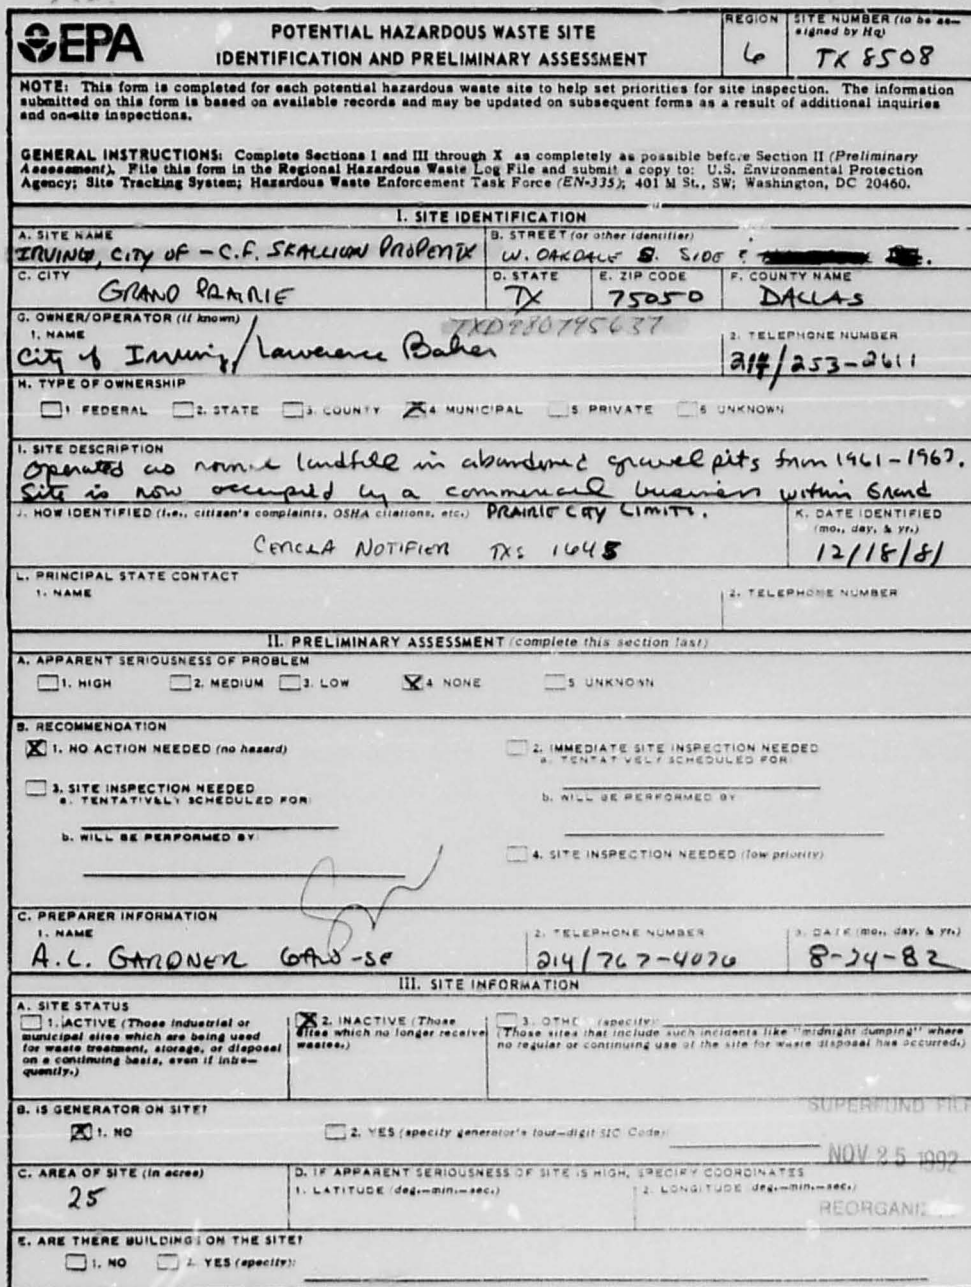 EPA
POTENTIAL HAZARDOUS WASTE SITE
IDENTIFICATION AND PRELIMINARY ASSESSMENT
REGION
6
SITE NUMBER (to be as-
signed by Hq)
TX 8508
NOTE: This form is completed for each potential hazardous waste site to help set priorities for site inspection. The information
submitted on this form is based on available records and may be updated on subsequent forms as a result of additional inquiries
and on-site inspections.
GENERAL INSTRUCTIONS: Complete Sections I and III through X as completely as possible before Section II (Preliminary
Assessment). File this form in the Regional Hazardous Waste Log File and submit a copy to: U.S. Environmental Protection
Agency; Site Tracking System; Hazardous Waste Enforcement Task Force (EN-335); 401 M St., SW; Washington, DC 20460.
I. SITE IDENTIFICATION
A. SITE NAME
IRVING, CITY OF - C.F. SKALLION PROPERTY
B. STREET (or other identifier)
W. OAKDALE S. SIDE
C. CITY
GRAND PRAIRIE
D. STATE
TX
E. ZIP CODE
75050
F. COUNTY NAME
DALLAS
G. OWNER/OPERATOR (if known)
TXD980795637
1. NAME
City of Irving/Lawerence Baker
2. TELEPHONE NUMBER
214/253-2611
H. TYPE OF OWNERSHIP
1. FEDERAL 2. STATE 3. COUNTY 4 MUNICIPAL 5 PRIVATE 6 UNKNOWN
I. SITE DESCRIPTION
Operated as landfill in abandoned gravel pits from 1961-1967.
Site is now occupied by a commercial business within Grand
PRAIRIE CITY LIMITS.
J. HOW IDENTIFIED (i.e., citizen's complaints, OSHA citations, etc.)
CERCLA NOTIFIER TXS 1645
K. DATE IDENTIFIED
(mo., day, & yr.)
12/18/81
L. PRINCIPAL STATE CONTACT
1. NAME
2. TELEPHONE NUMBER
II. PRELIMINARY ASSESSMENT (complete this section last)
A. APPARENT SERIOUSNESS OF PROBLEM
1. HIGH 2. MEDIUM 3. LOW 4 NONE 5 UNKNOWN
B. RECOMMENDATION
1. NO ACTION NEEDED (no hazard)
2. IMMEDIATE SITE INSPECTION NEEDED
a. TENTATIVELY SCHEDULED FOR:
b. WILL BE PERFORMED BY
3. SITE INSPECTION NEEDED
a. TENTATIVELY SCHEDULED FOR:
b. WILL BE PERFORMED BY:
4. SITE INSPECTION NEEDED (low priority)
C. PREPARER INFORMATION
1. NAME
A.L. GARDNER
2. TELEPHONE NUMBER
214/767-4076
3. DATE (mo., day, & yr.)
8-24-82
III. SITE INFORMATION
A. SITE STATUS
1. ACTIVE (Those industrial or
municipal sites which are being used
for waste treatment, storage, or disposal
on a continuing basis, even if infre-
quently.)
2. INACTIVE (Those
sites which no longer receive
wastes.)
3. OTHER (specify):
(Those sites that include such incidents like "midnight dumping" where
no regular or continuing use of the site for waste disposal has occurred.)
B. IS GENERATOR ON SITE?
1. NO
2. YES (specify generator's four-digit SIC Code):
SUPERFUND FILE
NOV 25 1992
REORGANIZ
C. AREA OF SITE (in acres)
25
D. IF APPARENT SERIOUSNESS OF SITE IS HIGH, SPECIFY COORDINATES
1. LATITUDE (deg.-min.-sec.)
2. LONGITUDE deg.-min.-sec.)
E. ARE THERE BUILDINGS ON THE SITE?
1. NO 2. YES (specify):